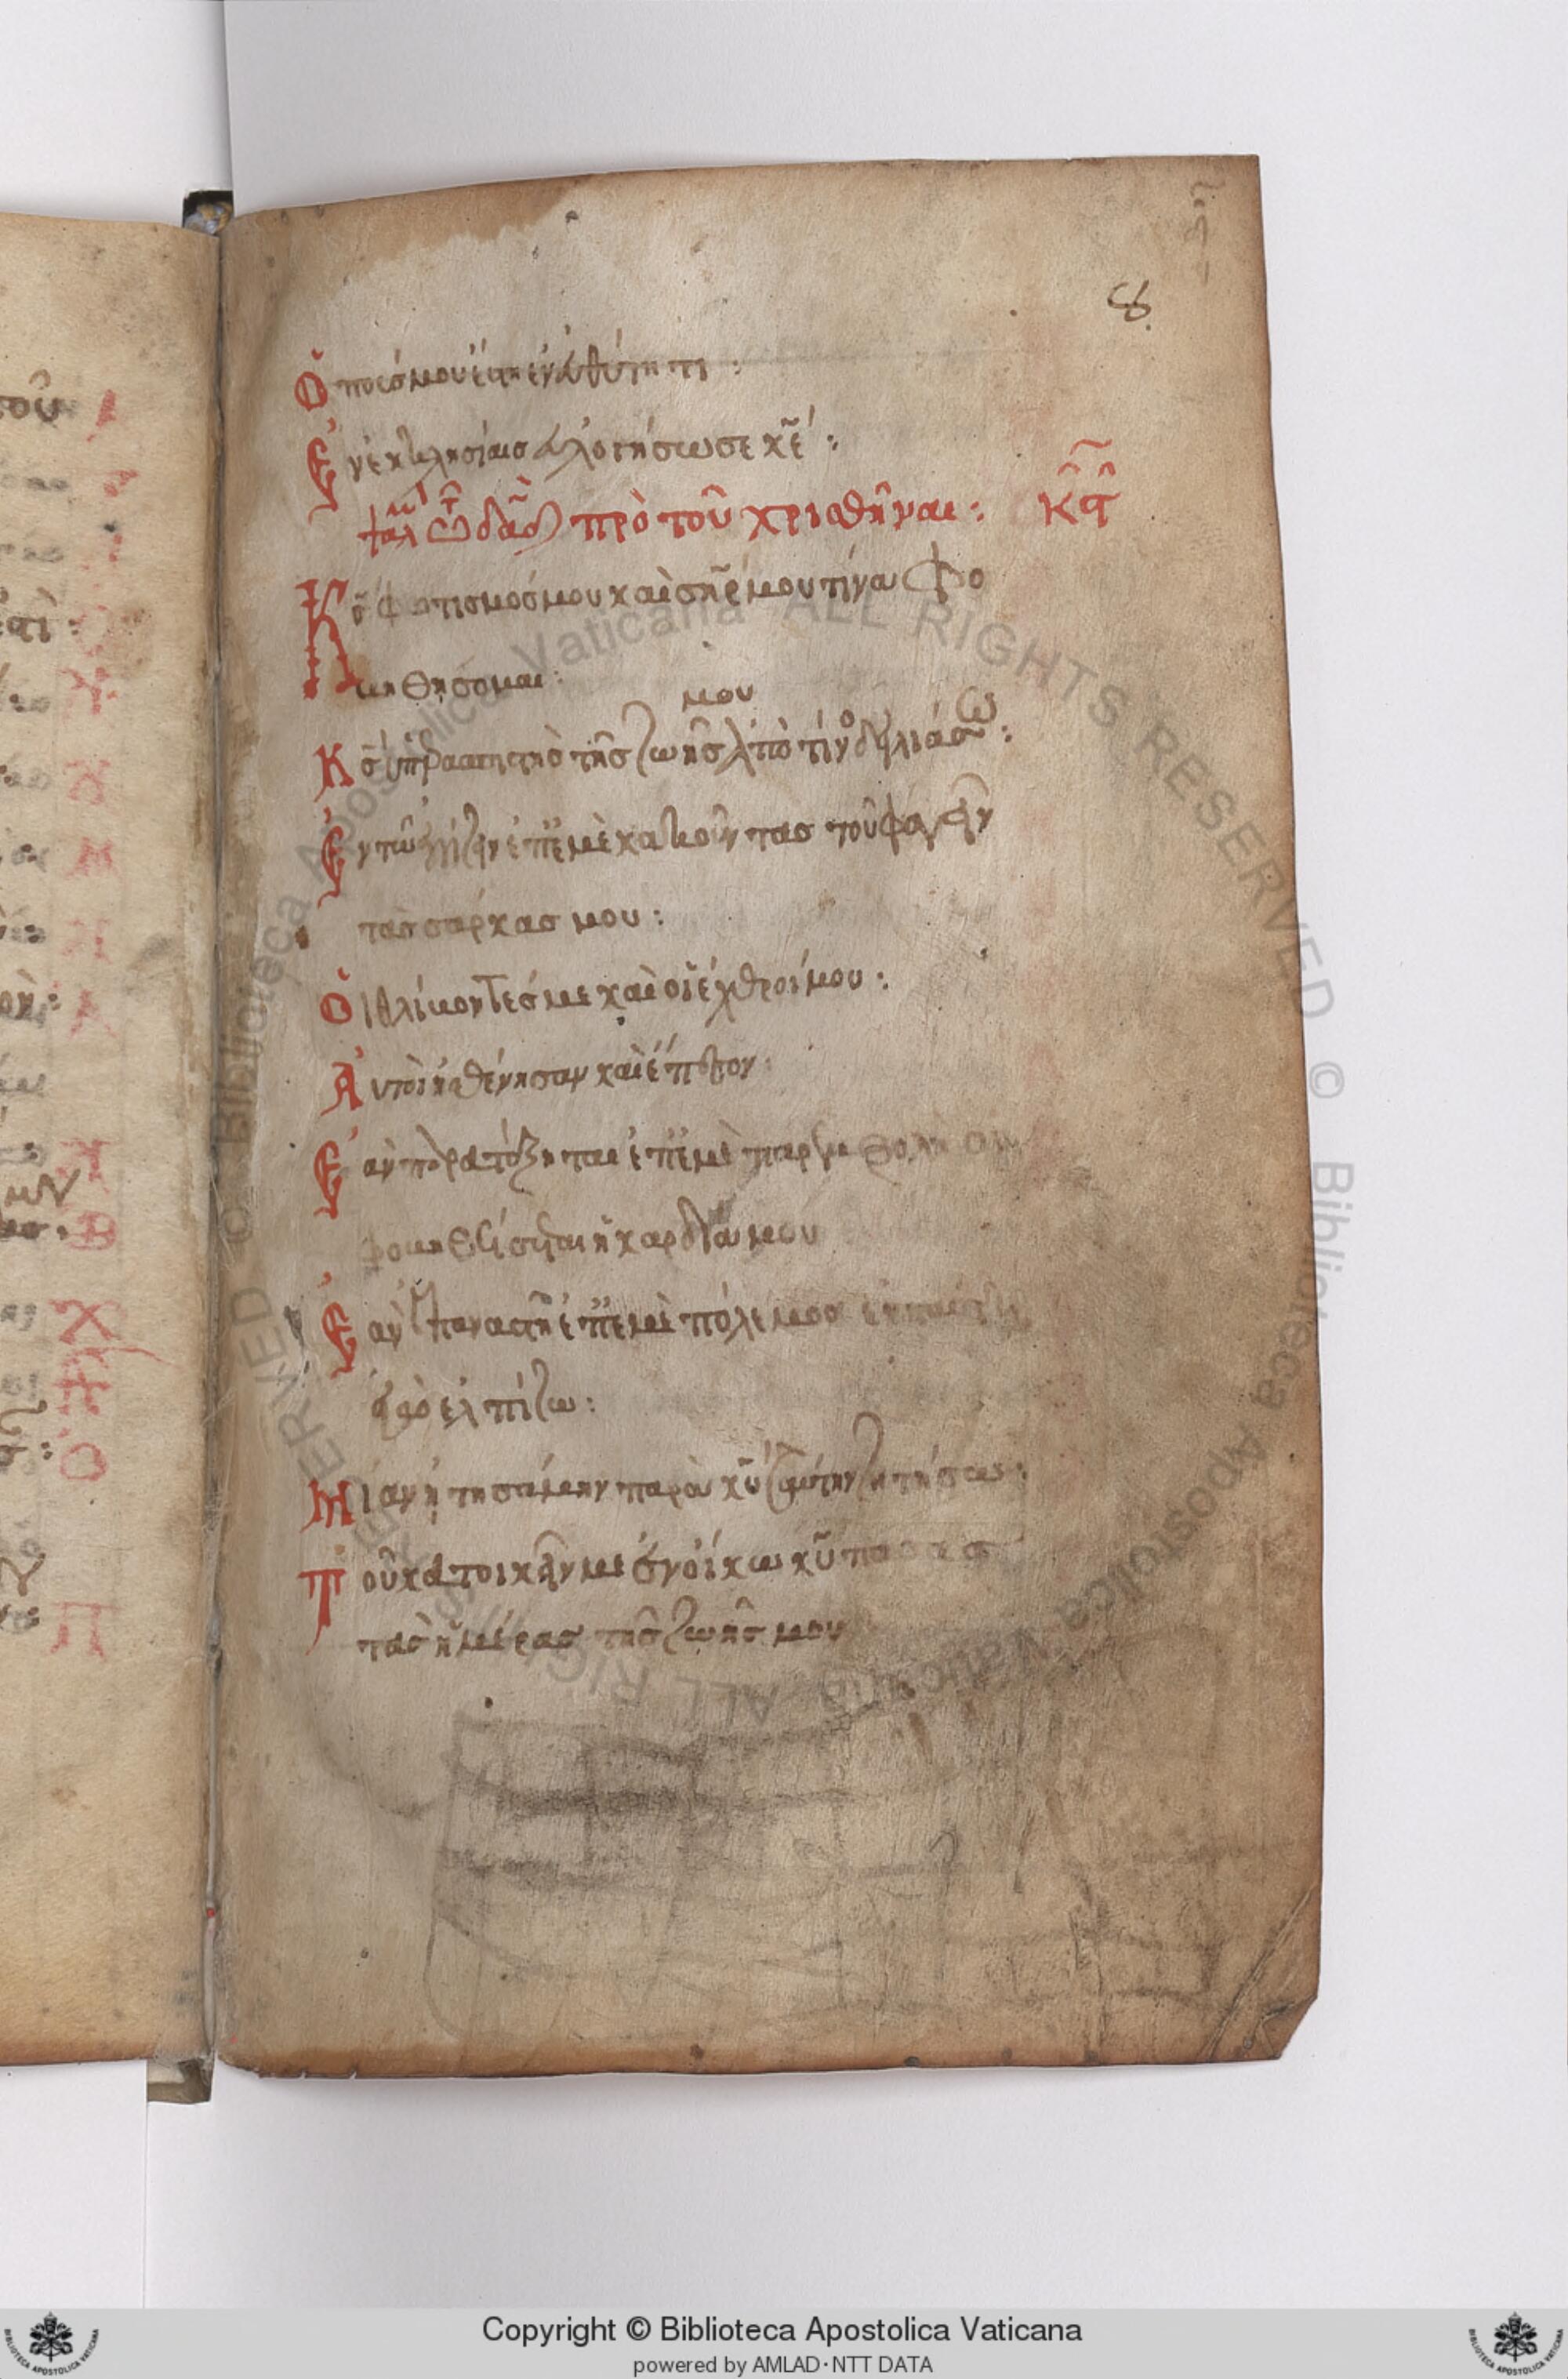 8
Ὁ ποῦσ μου ἔστη ἐν εὐθύτητι :
Ἐν ἐκκλησίαισ εὐλογήσω σε κ̅ε̅ :
ψαλμ τῶ δα̅δ πρὸ τοῦ χρισθῆναι : κ̅ϛ̅
Κ̅σ̅ φωτισμόσ μου καὶ σ̅η̅ρ̅ μου τίνα φο
βηθήσομαι :
Κ̅σ̅ ὑπερασπιστὴσ τῆσ ζωῆσ μου ἀπὸ τίνοσ δηλιάσω :
Ἐν τῶ ἐγγίζειν ἐπ' ἐμὲ κακοῦντασ τοῦ φαγεῖν
τὰσ σάρκασ μου :
Ὁι θλίβοντέσ με καὶ οἱ ἐχθροί μου :
Ἀυτοὶ ἠσθένησαν καὶ ἔπεσον :
Ἐὰν παρατάξηται ἐπ' ἐμὲ παρεμβολὴ οὐ
φοβηθήσεται ἡ καρδία μου
Ἐὰν ἐπαναστῆ ἐπ' ἐμὲ πόλεμοσ ἐν ταύτη
ἐγὼ ἐλπίζω :
Μίαν ἠτησάμην παρὰ κ̅υ̅ ταύτην ζητήσω :
Τοῦ κατοικεῖν με ἐν οἴκω κ̅υ̅ πάσασ
τὰσ ἡμέρασ τῆσ ζωῆσ μου
Copyright © Biblioteca Apostolica Vaticana
powered by AMLAD·NTT DATA